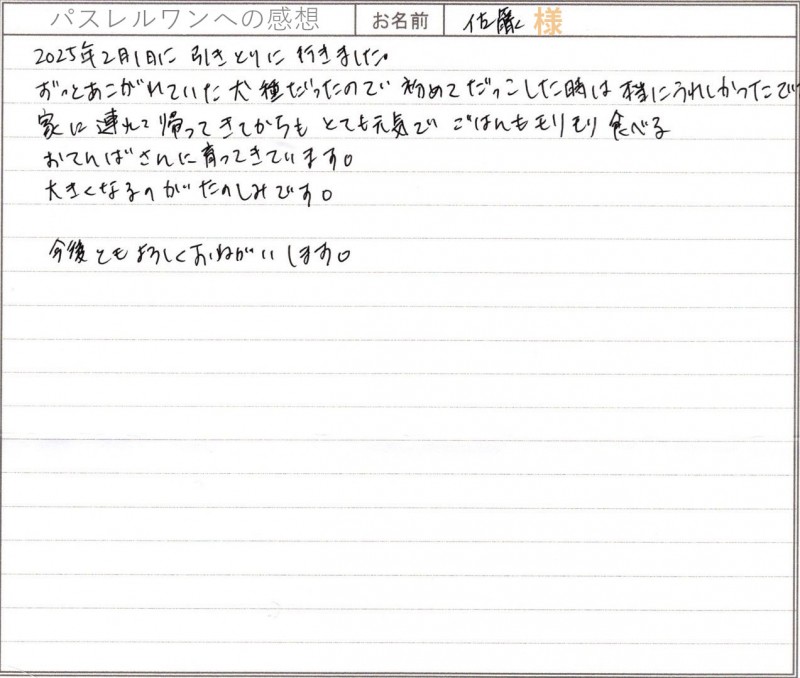 パスレルワンへの感想 お名前 佐藤 様
2025年2月1日に 引きとりに 行きました。
ずっとあこがれていた犬種だったので 初めてだっこした時は 本当にうれしかったで
家に連れて帰ってきてからも とても元気で ごはんもモリモリ 食べる
おてんばさんに育ってきています。
大きくなるのがたのしみです。
今後ともよろしくおねがいします。